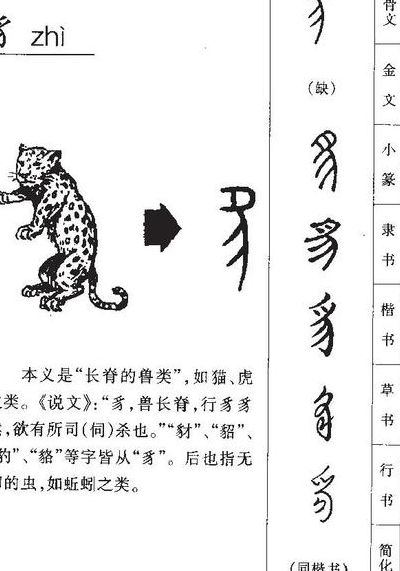 豸 zhì
本义是“长脊的兽类”,如猫、虎
之类。《说文》:“豸,兽长脊,行豸豸
,欲有所司(伺)杀也。”“豺”、“貂”、
豹”、“貉”等字皆从“豸”。后也指无
的虫,如蚯蚓之类。
(缺)
(同楷书)
骨文
金文
小篆
隶书
楷书
草书
行书
简化